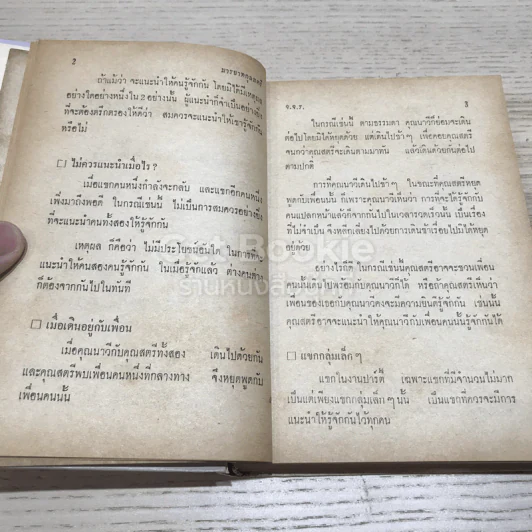 2
มารยาทกุลสตรี
ถ้าแม้ว่า จะแนะนำให้คนรู้จักกัน โดยมิได้มีเหตุผล
อย่างใดอย่างหนึ่งใน 2 อย่างนั้น ผู้แนะนำก็จำเป็นอย่างยิ่ง
ที่จะต้องตรึกตรองให้ดีว่า สมควรจะแนะนำให้เขารู้จักกัน
หรือไม่
□ ไม่ควรแนะนำเมื่อไร ?
เมื่อแขกคนหนึ่งกำลังจะกลับ และแขกอีกคนหนึ่ง
เพิ่งมาถึงพอดี ในกรณีเช่นนี้ ไม่เป็นการสมควรอย่างยิ่ง
ที่จะแนะนำคนทั้งสองให้รู้จักกัน
เหตุผล ก็คือว่า ไม่มีประโยชน์อันใด ในการที่จะ
แนะนำให้คนสองคนรู้จักกัน ในเมื่อรู้จักแล้ว ต่างคนต่าง
ก็ต้องจากกันไปในทันที
□ เมื่อเดินอยู่กับเพื่อน
เมื่อคุณนาวีกับคุณสตรีทั้งสอง เดินไปด้วยกัน
และคุณสตรีพบเพื่อนคนหนึ่งที่กลางทาง จึงหยุดพูดกับ
เพื่อนคนนั้น
จ.จ.ร.
3
ในกรณีเช่นนี้ ตามธรรมดา คุณนาวีก็ย่อมจะเดิน
ต่อไปโดยมิได้หยุดด้วย แต่เดินไปช้าๆ เพื่อคอยคุณสตรี
จนกว่าคุณสตรีจะเดินตามมาทัน แล้วเดินด้วยกันต่อไป
ตามปกติ
การที่คุณนาวีเดินไปช้าๆ ในขณะที่คุณสตรีหยุด
พูดกับเพื่อนนั้น ก็เพราะคุณนาวีเห็นว่า การที่จะรู้จักกับ
คนแปลกหน้าแล้วก็จากกันไปในเวลารวดเร็วนั้น เป็นเรื่อง
ที่ไม่จำเป็น จึงหลีกเลี่ยงไปด้วยการเดินช้าเรื่อยไปไม่ได้หยุด
อยู่ด้วย
อย่างไรก็ดี ในกรณีเช่นนี้ คุณสตรีอาจจะชวนเพื่อน
คนนั้นเดินไปพร้อมกับคุณนาวีก็ได้ หรือถ้าคุณสตรีเห็นว่า
เพื่อนของเธอกับคุณนาวีคงจะมีความยินดีรู้จักกัน เช่นนั้น
คุณสตรีอาจจะแนะนำให้คุณนาวีกับเพื่อนคนนั้นรู้จักกันได้
□ แขกกลุ่มเล็กๆ
แขกในงานปาร์ตี้ เฉพาะแขกที่มีจำนวนไม่มาก
เป็นแต่เพียงแขกกลุ่มเล็กๆ นั้น เป็นแขกที่ควรจะมีการ
แนะนำให้รู้จักกันไว้ทุกคน